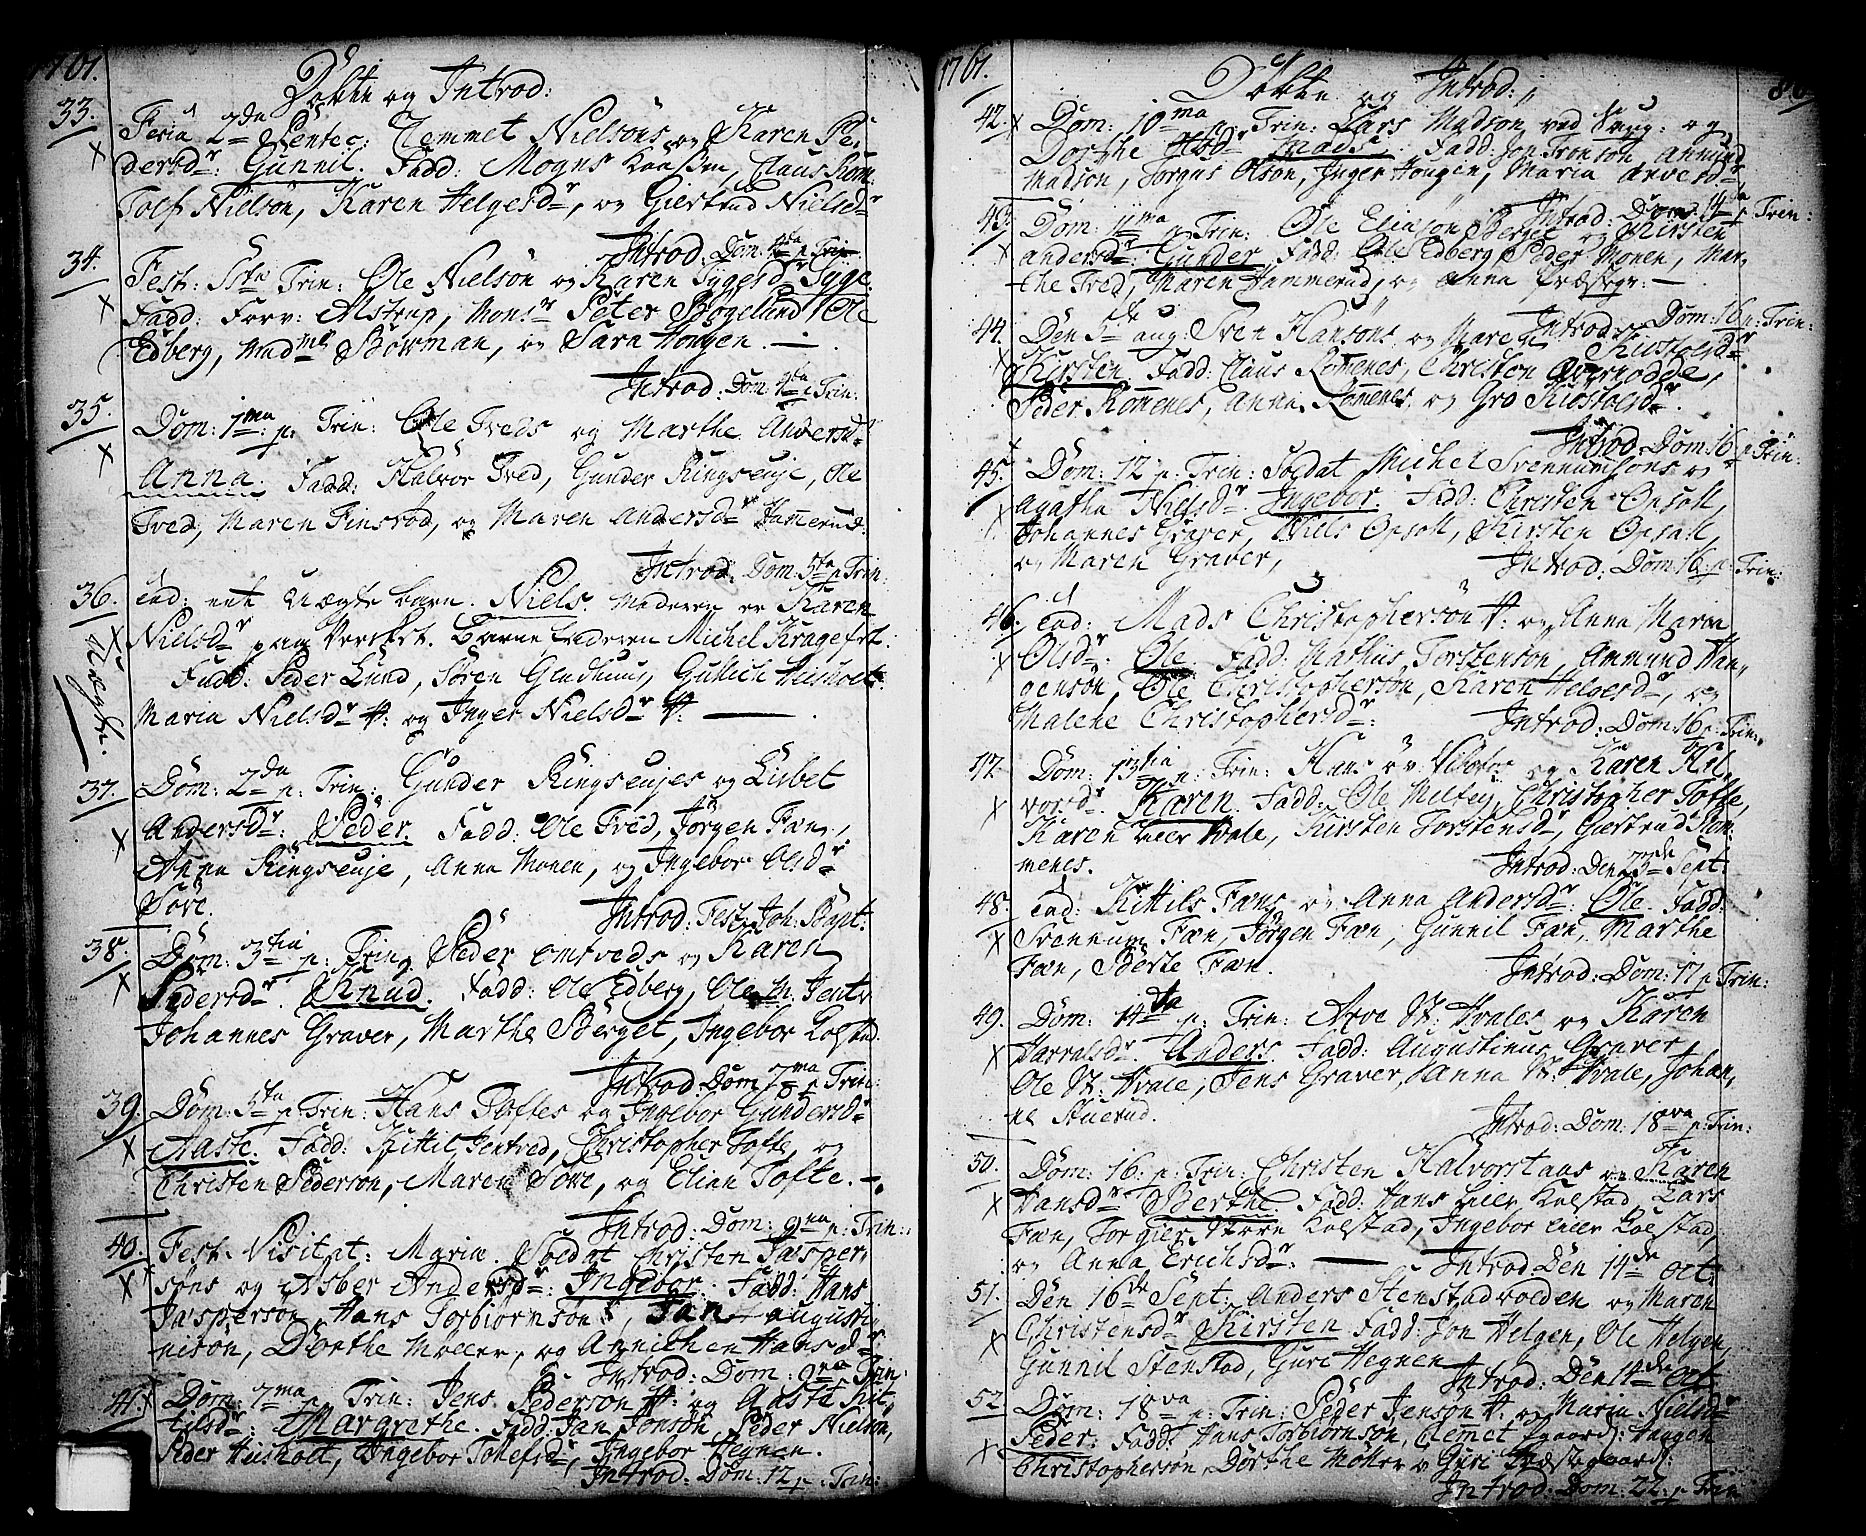 1761.
Döbte og Introd:
33. Feria 2da Pentec: Clemmet Nielsöns og Karen Pe-
dersdr: Gunnil. Fadd: Mogns Claus Rom.
Tolf Nielsön, Karen Helgesdr, og Giertrud Nielsdr
Introd: Dom: 4da p. Trin
34. Fest: SStæ Trin: Ole Nielsön og Karen Tygesdr Tyge.
Fadd: Forv: Alstrup, Monsr Peter Bögelund, Ole
Edberg, Madme Bowman, og Sara Hougen. —
Introd: Dom: 4ta p. Trin:
35. Dom: 1ma p. Trin: Ole Treds og Marthe Andersdr
Anna. Fadd: Halvor Tred, Gunder Ringseuje, Ole
Tred, Maren Finsrod, og Maren Andersdr Hammerud.
Introd: Dom: 5ta p. Trin:
36. Eod: eet uægte barn. Niels. Moderen er Karen
Uægte.
Nielsdr paa Verket. Barnefaderen Michel Kragefet.
Fadd: Peder Lund, Sören Gindhuus, Gullich Huisholt.
Maria Nielsdr W: og Inger Nielsdr W: —
37. Dom: 2da p. Trin: Gunder Ringseujes og Lisbet
Andersdr: Peder. Fadd: Ole Tred, Jörgen Fæn,
Anna Ringseuje, Anna Monen, og Ingebor Olsdr
Sove.
Introd: Fest: Joh: Bapt:
38. Dom: 3tia p. Trin: Peder omtveds og Karen
Pedersdr. Knud. Fadd: Ole Edberg, Ole M. Jente
Johannes Graver, Marthe Berget, Ingebor Kolstad.
Introd: Dom 7ma p. Trin:
39. Dom: 5ta p. Trin: Hans Toftes og Ingebor Gundersdr
Aaste. Fadd: Kittil Jentved, Christopher Tofte, og
Christen Pedersön, Maren Sove, og Elian Tofte. —
Introd: Dom: 9na p. Trin:
40. Fest: Visitat: Mariæ. Soldat Christen Jasper-
söns og Asber Andersdr: Ingebor. Fadd: Hans
Jaspersön, Hans Torbiörnsön, Jan Augusti-
nisön, Dorthe Möller, og Annichen Hansdr
Introd: Dom: 9na p. Trin:
41. Dom: 7ma p. Trin: Jens Pedersön W: og Aaste Kit-
tilsdr: Margrethe. Fadd: Jan Jonsön, Peder Nielsön,
Peder Huisholt, Ingebor Tollefsdr, Ingebor Hegnen.
Introd: Dom: 12 p. Trin:
1761.
Döbte og Introd:
42. Dom: 10ma p. Trin: Lars Madsön ved Saug: og
Dorthe Mads. Fadd: Jon Tronsön, Amund
Madsön, Torgus Olsön, Inger Hougen, Maria Arvesdr,
Introd: Dom: 14ta p. Trin:
43. Dom: 11ma p. Trin: Ole Elinsön Berget og Kirsten
Andersdr: Gunder. Fadd: Ole Edberg, Peder Monen, Mar-
the Tred, Maren Hammerud, og Anna Præstegr: —
Introd: Dom: 16 p. Trin:
44. Den 5de aug: Sven Hansöns og Maren Kiostolsdr
Kirsten. Fadd: Claus Romenes, Christen Gverjodde,
Peder Romenes, Anna Romenes, og Gro Kiostolsdr.
Introd: Dom: 16 p. Trin:
45. Dom: 12 p. Trin: Soldat Michel Svennumsöns og
Agatha Nielsdr. Ingebor. Fadd: Christen Opsall,
Johannes Graver, Niels Opsall, Kirsten Opsall,
og Maren Graver,
Introd: Dom: 16 p. Trin:
46. Eod: Mads Christophersön W: og Anna Maria
Olsdr: Ole. Fadd: Mathiis Torstensön, Ammund Han-
gensön, Ole Christophersön, Karen Helgesdr, og
Malehe Christophersdr:
Introd: Dom: 16 p. Trin:
47. Dom: 13tia p. Trin: Hans öv: Vibetoe og Karen Hal-
vorsdr. Karen. Fadd: Ole Melteg, Christopher Tofte,
Karen Leier Hvale, Kirsten Torstensdr, Giertrud Rom-
menes.
Introd: Den 23de Sept:
48. Eod: Kittils Fæns og Anna Andersdr: Ole. Fadd:
Svennum Fæn, Jörgen Fæn, Gunnil Fæn, Marthe
Fæn, Berte Fæn.
Introd: Dom: 17 p. Trin:
49. Dom: 14ta p. Trin: Arve W: Hvales og Karen
Harralsdr. Anders. Fadd: Augustinus Graver,
Ole W: Hvale, Jens Graver, Anna W: Hvale, Johan-
ne Stuerud.
Introd: Dom: 18va p. Trin:
50. Dom: 16. p. Trin: Christen Halvorstaas og Karen
Hansdr Berthe. Fadd: Hans Leier Kolstad, Lars
Fæn, Torgier Store Kolstad, Ingebor Leier Kolstad,
og Anna Erichsdr: —
Introd: Den 14de Oct:
51. Den 16de Sept: Anders Stenstadvolden og Maren
Christensdr Kirsten. Fadd: Jon Helgen, Ole Helgen,
Gunnil Stenstad, Guri Hegnen
Introd: Den 14de Oct
52. Dom: 18va p. Trin: Peder Jensön W. og Maria Nielsdr
Peder. Fadd: Hans Torbiörnsön, Clemet Haagen
Christophersön, Dorthe Möller og Guri Præstegaard:
Introd: Dom: 22. p. Trin